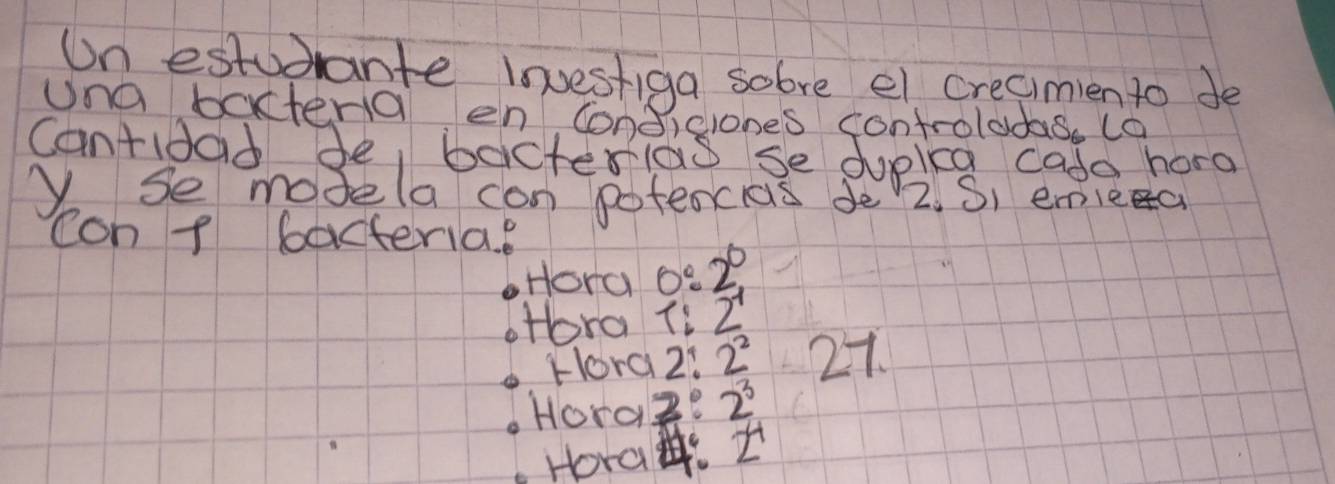 Un estudiante investiga sobre el crecimiento de
una bacteria en condiciones controladas. La
cantidad de bacterias se duplica cada hora
y se modela con potencias de 2. Si emieza
con 1 bacteria:
• Hora 0: 2⁰
• Hora 1: 2¹
• Hora 2: 2² 27
• Hora 3: 2³
• Hora 4: 2⁴